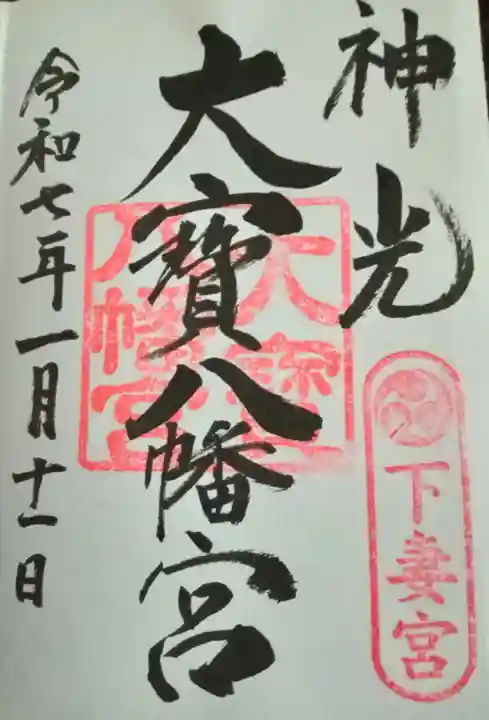 神光
下妻宮
大寶八幡宮
大宝
八幡宮
令和七年一月十一日